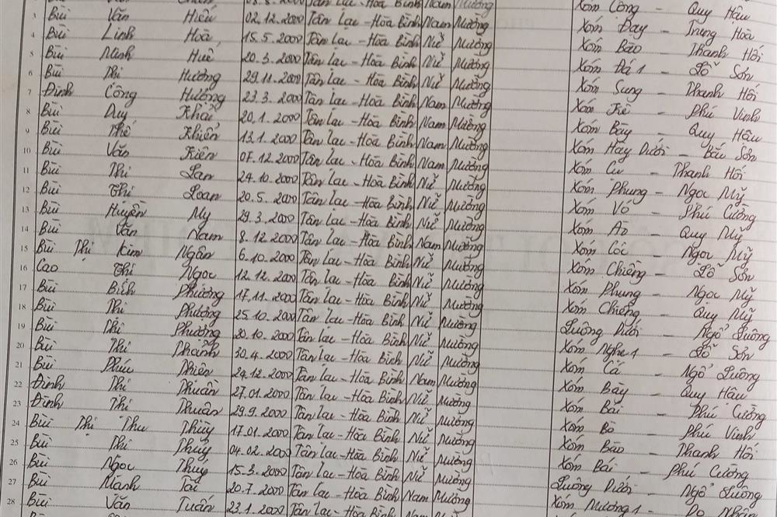 3 Bùi Văn Hiếu 02.12.2000 Tân Lạc - Hòa Bình Nam Mường Xóm Công - Quy Hậu
4 Bùi Linh Hoà 15.5.2000 Tân Lạc - Hòa Bình Nữ Mường Xóm Đay - Trung Hoà
5 Bùi Minh Huế 20.3.2000 Tân Lạc - Hòa Bình Nữ Mường Xóm Bào - Thanh Hối
6 Bùi Thị Hương 29.11.2000 Tân Lạc - Hòa Bình Nữ Mường Xóm Đá 1 - Lỗ Sơn
7 Đinh Công Hưởng 23.3.2000 Tân Lạc - Hòa Bình Nam Mường Xóm Sung - Thanh Hối
8 Bùi Duy Khải 20.1.2000 Tân Lạc - Hòa Bình Nam Mường Xóm Kè - Phú Vinh
9 Bùi Thế Khiển 13.1.2000 Tân Lạc - Hòa Bình Nam Mường Xóm Bậy - Quy Hậu
10 Bùi Văn Kiên 07.12.2000 Tân Lạc - Hòa Bình Nam Mường Xóm Hày Dưới - Bắc Sơn
11 Bùi Thị Lan 24.10.2000 Tân Lạc - Hòa Bình Nữ Mường Xóm Cú - Thanh Hối
12 Bùi Thị Loan 20.5.2000 Tân Lạc - Hòa Bình Nữ Mường Xóm Phung - Ngọc Mỹ
13 Bùi Huyền My 29.3.2000 Tân Lạc - Hòa Bình Nữ Mường Xóm Vó - Phú Cường
14 Bùi Văn Nam 8.12.2000 Tân Lạc - Hòa Bình Nam Mường Xóm Áo - Quy Mỹ
15 Bùi Thị Kim Ngân 6.10.2000 Tân Lạc - Hòa Bình Nữ Mường Xóm Cóc - Ngọc Mỹ
16 Cao Thị Ngọc 12.12.2000 Tân Lạc - Hòa Bình Nữ Mường Xóm Chiềng - Lỗ Sơn
17 Bùi Bích Phương 17.11.2000 Tân Lạc - Hòa Bình Nữ Mường Xóm Phung - Ngọc Mỹ
18 Bùi Thị Phương 25.10.2000 Tân Lạc - Hòa Bình Nữ Mường Xóm Chiềng - Quy Mỹ
19 Bùi Thị Phương 20.10.2000 Tân Lạc - Hòa Bình Nữ Mường Luông Dưới - Ngổ Luông
20 Bùi Thị Thành 30.4.2000 Tân Lạc - Hòa Bình Nữ Mường Xóm Nghẹ 1 - Lỗ Sơn
21 Bùi Phúc Thiên 24.12.2000 Tân Lạc - Hòa Bình Nam Mường Xóm Cá - Ngổ Luông
22 Đinh Thị Thuần 27.01.2000 Tân Lạc - Hòa Bình Nữ Mường Xóm Bậy - Quy Hậu
23 Đinh Thị Thuần 29.9.2000 Tân Lạc - Hòa Bình Nữ Mường Xóm Bãi - Phú Cường
24 Bùi Thị Thu Thùy 17.01.2000 Tân Lạc - Hòa Bình Nữ Mường Xóm Bò - Phú Vinh
25 Bùi Thị Thủy 04.02.2000 Tân Lạc - Hòa Bình Nữ Mường Xóm Bào - Thanh Hối
26 Bùi Ngọc Thúy 15.3.2000 Tân Lạc - Hòa Bình Nữ Mường Xóm Bái - Phú Cường
27 Bùi Mạnh Tài 20.7.2000 Tân Lạc - Hòa Bình Nam Mường Luông Dưới - Ngổ Luông
28 Bùi Văn Tuấn 23.1.2000 Tân Lạc - Hòa Bình Nam Mường Xóm Mương 1 - Do Nhân